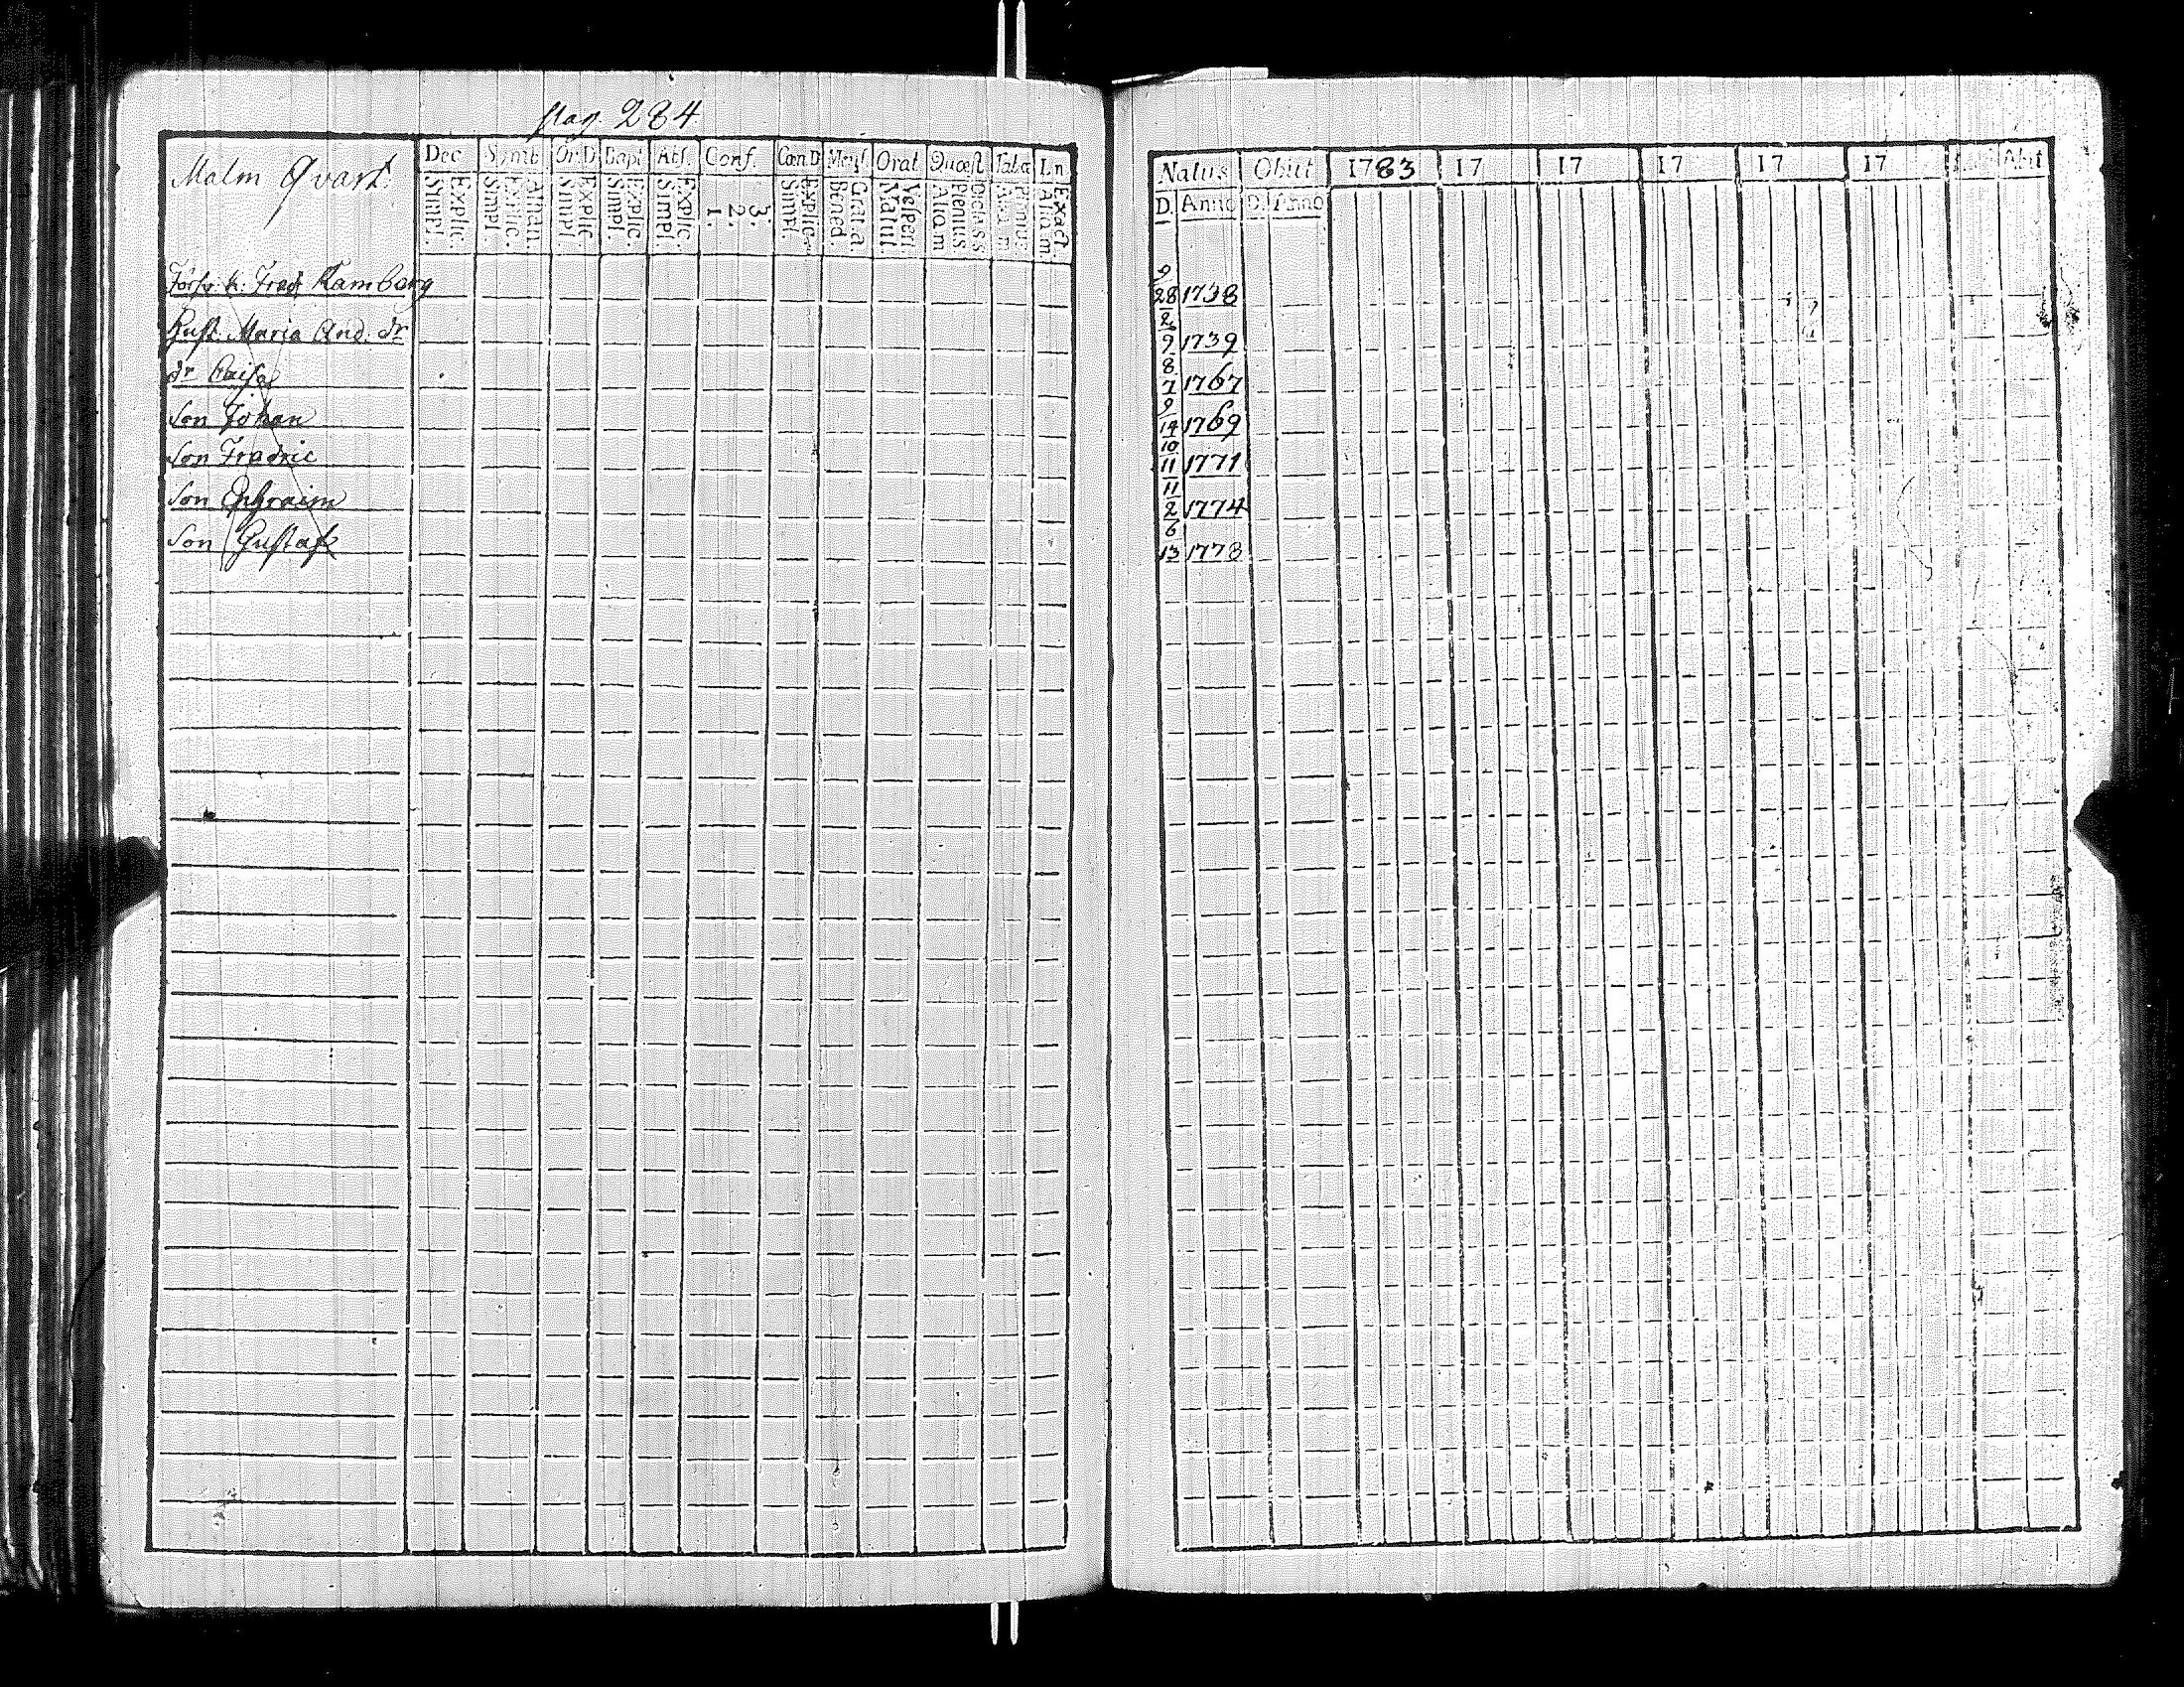 pag. 284
Malm Qvart.
Dec Symb Or.D Bapt Abs. Conf. Cœn D Mens. Orat Quæst Taba Ln
Simpl. Explic. Simpl. Explic. Athan. Simpl Explic. Simpl. Explic. Simpl. Explic. 1. 2. 3. Simpl. Explic. Bened. Grat.a Matut. Vesperi Aliam Plenius Exact. Aliam
Natus Obiit 1783 17 17 17 17 17 Abit
D. Anno D. Anno
Fred Kamberg 9/28 1738
Hust. Maria And. dr 2/9 1739
dr Caisa 8/7 1767
Son Johan 9/14 1769
Son Fradric 10/11 1771
Son Ephraim 11/2 1774
Son Gustaf 6/13 1778